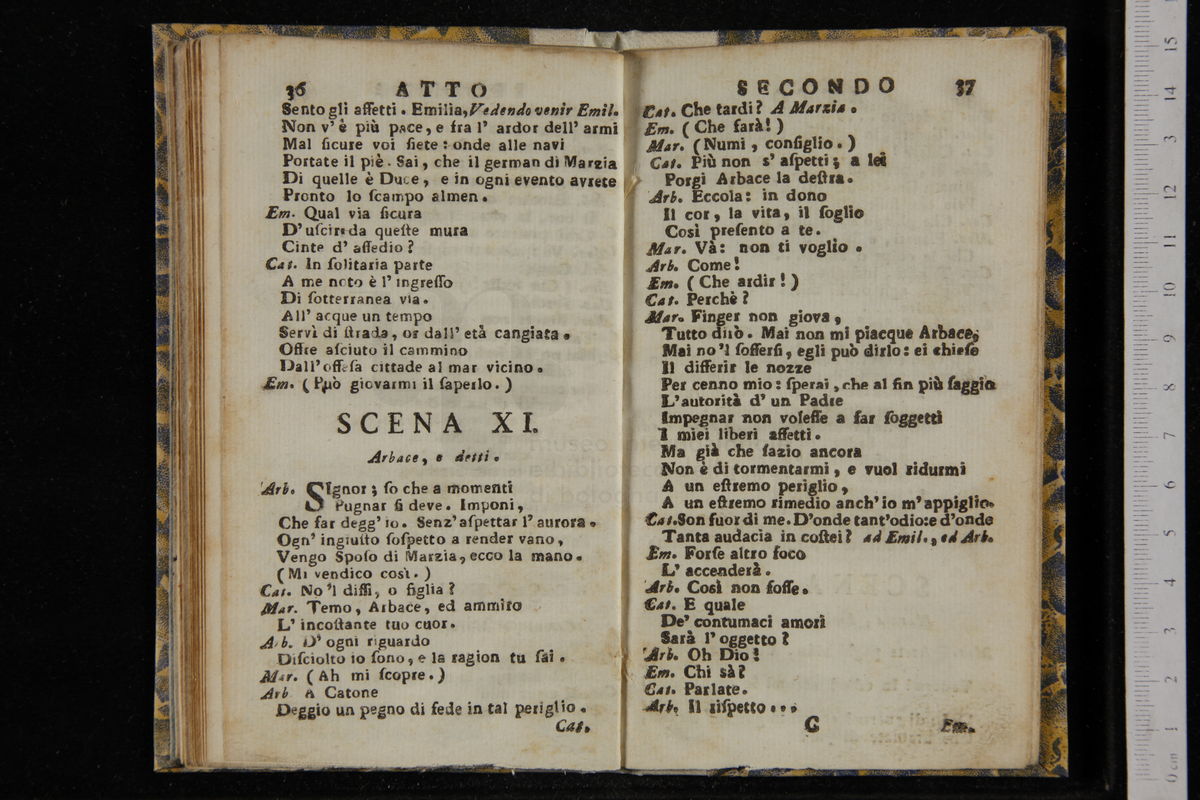 36 ATTO
Sento gli affetti. Emilia, Vedendo venir Emil.
Non v'è più pace, e fra l' ardor dell' armi
Mal ſicure voi ſiete: onde alle navi
Portate il piè. Sai, che il german di Marzia
Di quelle è Duce, e in ogni evento avrete
Pronto lo ſcampo almen.
Em. Qual via ſicura
D' uſcir da queſte mura
Cinte d' aſſedio?
Cat. In ſolitaria parte
A me noto è l' ingreſſo
Di ſotterranea via.
All' acque un tempo
Servì di ſtrada, or dall' età cangiata.
Offre aſciuto il cammino
Dall' offeſa cittade al mar vicino.
Em. (Può giovarmi il ſaperlo.)
SCENA XI.
Arbace, e detti.
Arb. SIgnor; ſo che a momenti
Pugnar ſi deve. Imponi,
Che far degg' io. Senz' aſpettar l' aurora.
Ogn' ingiuſto ſoſpetto a render vano,
Vengo Spoſo di Marzia, ecco la mano.
(Mi vendico così.)
Cat. No 'l diſſi, o figlia?
Mar. Temo, Arbace, ed ammiro
L' incoſtante tuo cuor.
Arb. D' ogni riguardo
Diſciolto io ſono, e la ragion tu ſai.
Mar. (Ah mi ſcopre.)
Arb. A Catone
Deggio un pegno di fede in tal periglio.
Cat.
SECONDO 37
Cat. Che tardi? A Marzia.
Em. (Che farà!)
Mar. (Numi, conſiglio.)
Cat. Più non s' aſpetti; a lei
Porgi Arbace la deſtra.
Arb. Eccola: in dono
Il cor, la vita, il ſoglio
Così preſento a te.
Mar. Và: non ti voglio.
Arb. Come!
Em. (Che ardir!)
Cat. Perchè?
Mar. Finger non giova,
Tutto dirò. Mai non mi piacque Arbace,
Mai no 'l ſofferſi, egli può dirlo: ei chieſe
Il differir le nozze
Per cenno mio: ſperai, che al fin più ſaggia
L' autorità d' un Padre
Impegnar non voleſſe a far ſoggetti
I miei liberi affetti.
Ma già che ſazio ancora
Non è di tormentarmi, e vuol ridurmi
A un eſtremo periglio,
A un eſtremo rimedio anch' io m' appiglio.
Cat. Son fuor di me. D'onde tant' odio: e d'onde
Tanta audacia in coſtei? ad Emil., ed Arb.
Em. Forſe altro foco
L' accenderà.
Arb. Così non foſſe.
Cat. E quale
De' contumaci amori
Sarà l' oggetto?
Arb. Oh Dio!
Em. Chi sà?
Cat. Parlate.
Arb. Il riſpetto...
C Em.